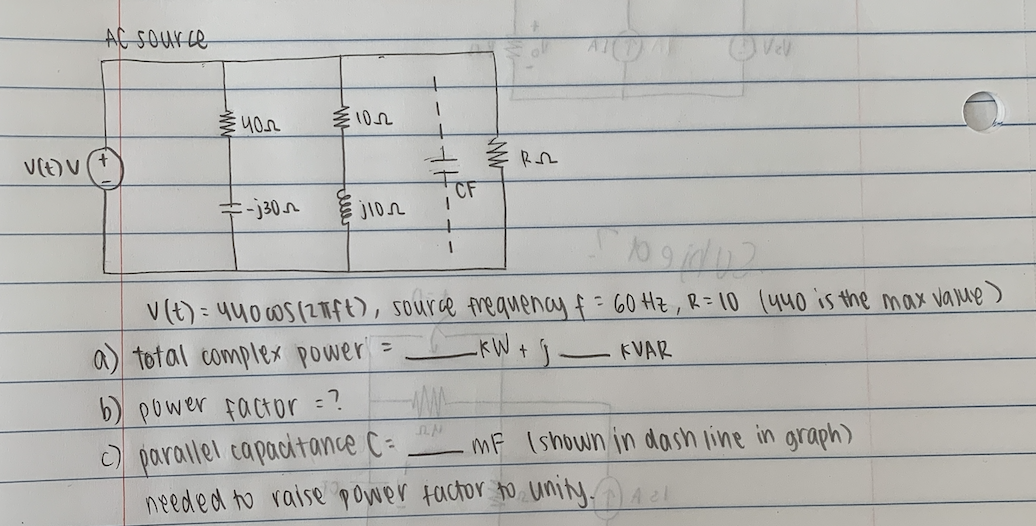 AC source
V(t) V
40Ω
-j30Ω
10Ω
j10Ω
CF
RΩ
V(t) = 440 cos(2πft), source frequency f = 60 Hz, R = 10 (440 is the max value)
a) total complex power = ____ KW + j ____ KVAR
b) power factor = ?
c) parallel capacitance C = ____ mF (shown in dash line in graph)
needed to raise power factor to unity.